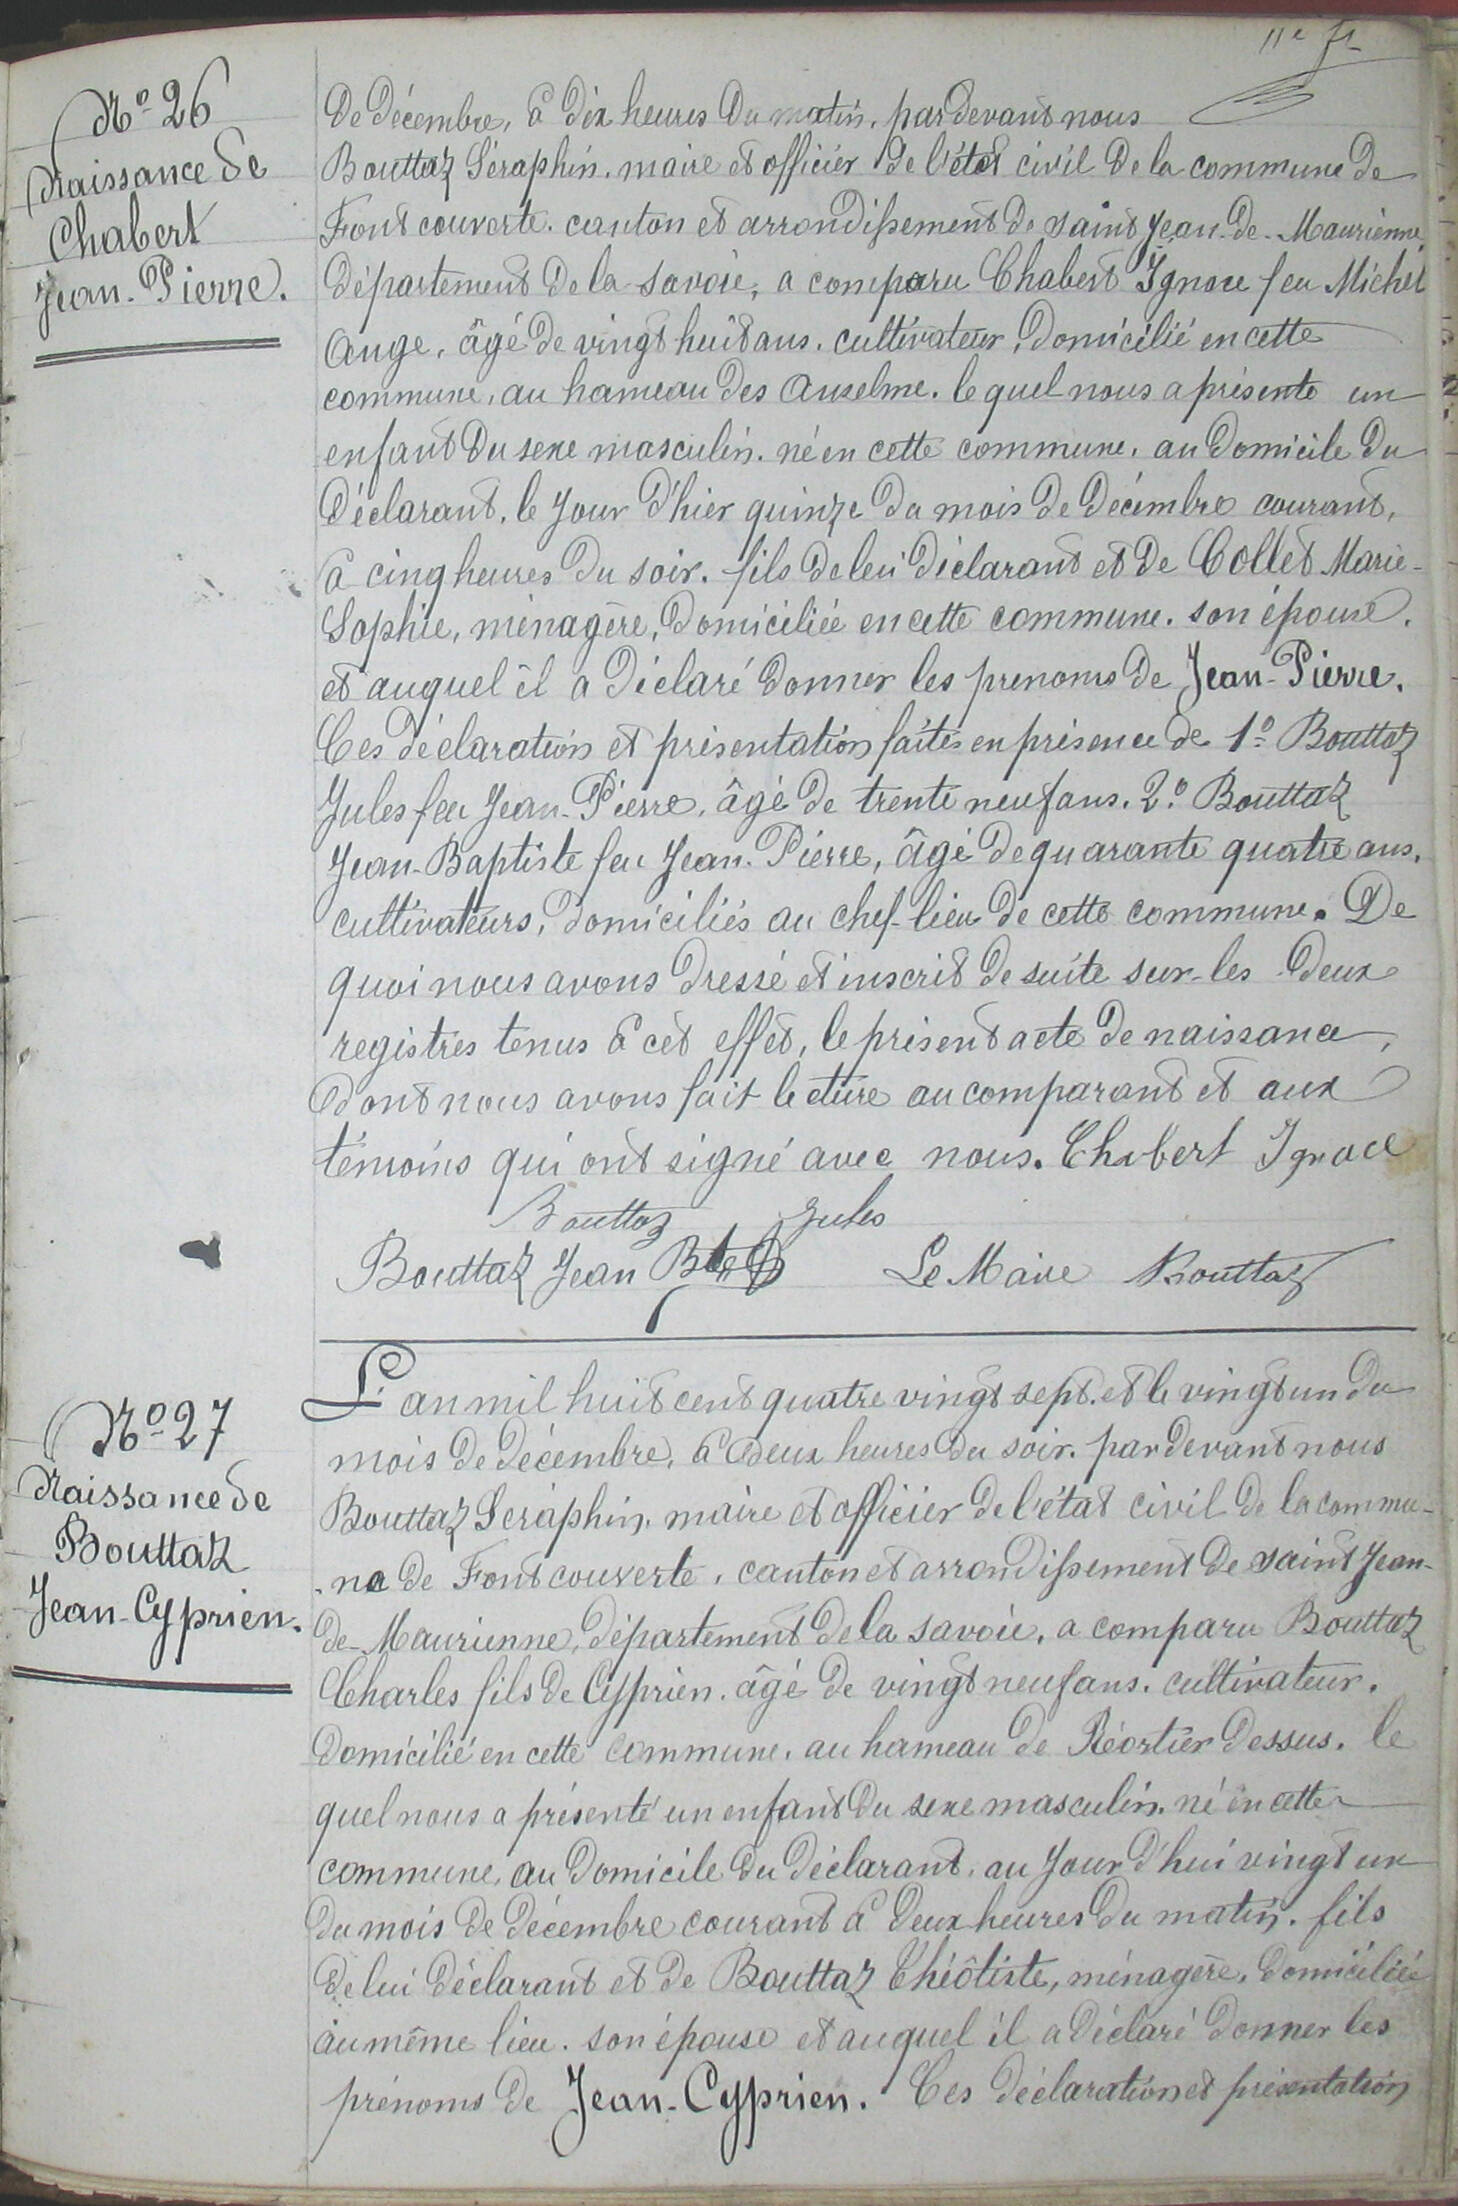 11e ft
No 26
Naissance de
Chabert
Jean-Pierre.
De décembre, à dix heures du matin, pardevant nous
Bouttaz Séraphin, maire et officier de l'état civil de la commune de
Fontcouverte, canton et arrondissement de saint Jean-de-Maurienne,
département de la Savoie, a comparu Chabert Ignace feu Michel
Ange, âgé de vingt huit ans, cultivateur, domicilié en cette
commune, au hameau des Anselme, le quel nous a présenté un
enfant du sexe masculin, né en cette commune, au domicile du
déclarant, le jour d'hier quinze du mois de décembre courant,
à cinq heures du soir, fils de lui déclarant et de Collet Marie-
Sophie, ménagère, domiciliée en cette commune, son épouse,
et auquel il a déclaré donner les prenoms de Jean-Pierre.
Ces déclaration et présentation faites en présence de 1º Bouttaz
Jules feu Jean-Pierre, âgé de trente neuf ans, 2º Bouttaz
Jean-Baptiste feu Jean-Pierre, âgé de quarante quatre ans,
cultivateurs, domiciliés au chef-lieu de cette commune. De
quoi nous avons dressé et inscrit de suite sur les deux
registres tenus à cet effet, le présent acte de naissance,
dont nous avons fait lecture au comparant et aux
témoins qui ont signé avec nous. Chabert Ignace
Bouttaz Jules
Bouttaz Jean Bte Le Maire Bouttaz
No 27
Naissance de
Bouttaz
Jean-Cyprien.
L'an mil huit cent quatre vingt sept, et le vingt un du
mois de décembre, à deux heures du soir, pardevant nous
Bouttaz Séraphin, maire et officier de l'état civil de la commu-
-ne de Fontcouverte, canton et arrondissement de saint Jean-
de-Maurienne, département de la Savoie, a comparu Bouttaz
Charles fils de Cyprien, âgé de vingt neuf ans, cultivateur,
domicilié en cette commune, au hameau de Réortier dessus, le
quel nous a présenté un enfant du sexe masculin, né en cette
commune, au domicile du déclarant, au jour d'hui vingt un
du mois de décembre courant à deux heures du matin, fils
de lui déclarant et de Bouttaz Théôtiste, ménagère, domiciliée
au même lieu, son épouse et auquel il a déclaré donner les
prénoms de Jean-Cyprien. Ces déclaration et présentation